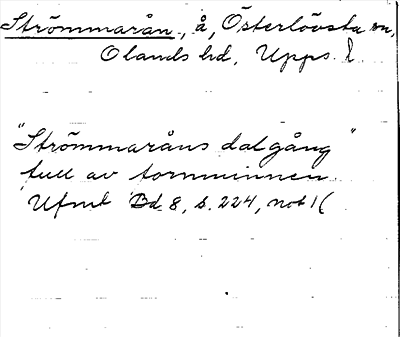 Strömmarån, å, Österlövsta sn,
Olands hd, Upps. l.
"Strömmaråns dalgång"
full av fornminnen.
Ufmt Bd 8, s. 224, not 1(